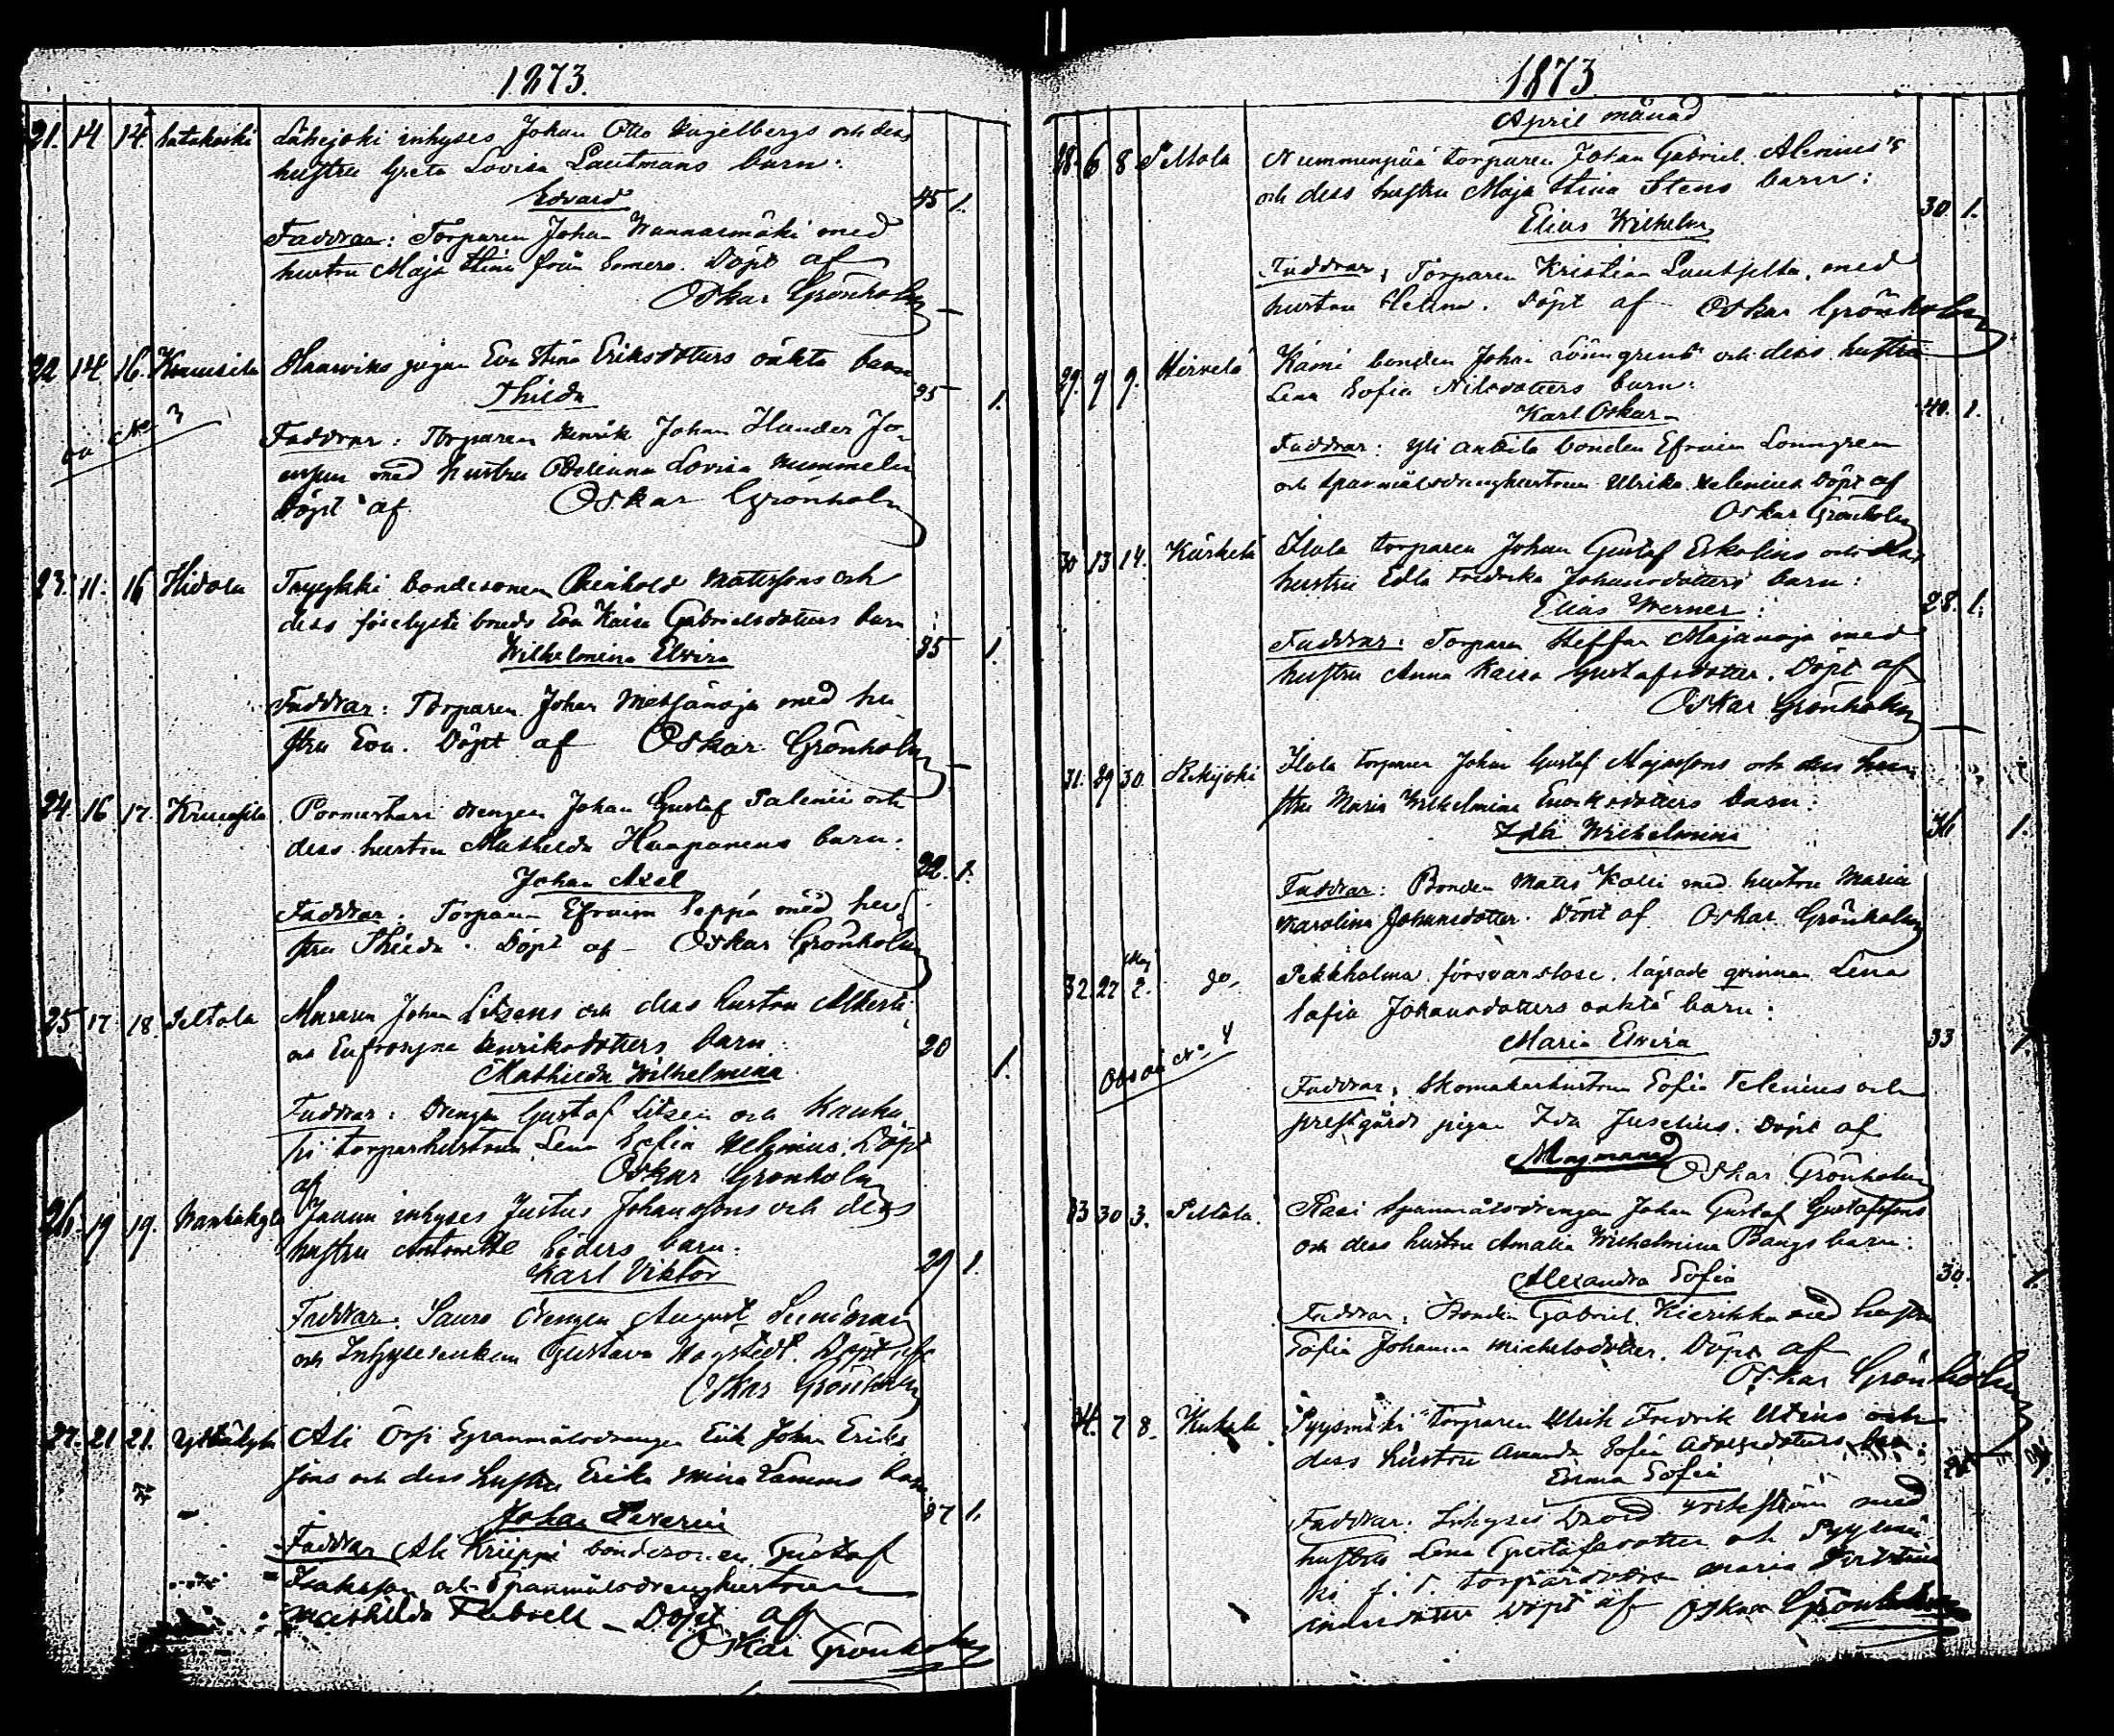 1873.
21. 14 14. Latakoski Lähejoki inhyses Johan Otto Kugelbergs och dess
hustru Greta Lovisa Lautmans barn:
Edvard 45 1.
Faddrar: Torparen Johan Wannasmäki med
hustru Maja Stina från Somero. Döpt af
Oskar Grönholm
22 14 16. Kruusila pigan Eva Stina Eriksdotters oäkta barn
Thilda 25 1.
oä No 3
Faddrar: Torparen Henrik Johan
med hustru Lovisa
Döpt af Oskar Grönholm
23. 11. 16 Hidola Tryykki bondesonen Reinhold Matssons och
dess förelysta bruds Eva Kaisa Gabrielsdotters barn
Wilhelmina Elvira 35 1.
Faddrar: Torparen Johan Metsänoja med hu
stru Eva. Döpt af Oskar Grönholm
24. 16. 17. Kruusila Pormestari drengen Johan Gustaf Salenii och
dess hustru Mathilda Haapanens barn:
Johan Axel 22. 1.
Faddrar: Torparen Efraim Seppä med hu
stru Thilda. Döpt af Oskar Grönholm
25 17 18. Peltola Muraren Johan Litzens och dess hustru Alberti
Eufrosyne Henriksdotters barn:
Mathilda Wilhelmina 20 1.
Faddrar: Drengen Gustaf Litzen och
torparhustrun Lena Sofia Helenius. Döpt
af Oskar Grönholm
26. 19 19. Vanhakylä inhyses Justus Johanssons och dess
hustru Antonette Söders barn:
Karl Viktor 29 1.
Faddrar: Sauro drengen August
och Gustava Hagstedt. Döpt af
Oskar Grönholm
27. 21 21. Ylikulma Ali Örsi Spanmålsdrengen Erik Johan Eriks
sons och dess hustru Erika Mina barn
Johan Severin 37 1.
Faddrar Ali Kriippi bondesonen Gustaf
Isaksson och Spanmålsdrenghustrun
Mathilda Döpt af
Oskar Grönholm
1873
April månad
28. 6 8 Peltola Nummenpää torparen Johan Gabriel Alenius's
och dess hustru Maja Stina Stens barn:
Elias Wilhelm 30. 1.
Faddrar: Torparen Kristian med
hustru Helena. Döpt af Oskar Grönholm
29. 9 9. Hirvelä Kämi bonden Johan Lönngrens och dess hustru
Lena Sofia Nilsdotters barn:
Karl Oskar 40. 1.
Faddrar: Yli Ankila bonden Efraim Lönngren
och Spanmålsdrenghustrun Ulrika Helenius Döpt af
Oskar Grönholm
30 13 14. Kurkelä Ilola torparen Johan Gustaf Eskolins och dess
hustru Edla Fredrika Johansdotters barn:
Elias Werner: 28. 1.
Faddrar: Torparen Steffan Majanoja med
hustru Anna Kaisa Gustafsdotter. Döpt af
Oskar Grönholm
31. 29 30. Rekijoki Ilola torparen Johan Gustaf och dess hu
stru Maria Wilhelmina Enoksdotters barn:
Ida Wilhelmina 36 1.
Faddrar: Bonden Mats Kolli med hustru Maria
Karolina Johansdotter. Döpt af Oskar Grönholm
32. 27 Maj 2. do, Pekkholma försvarslose lägrade qvinnan Lena
Sofia Johansdotters oäkta barn:
Maria Elvira 33 1.
Obs oä No 4
Faddrar: Skomakarhustrun Sofia Telenius och
prestgårds pigan Ida Juselius. Döpt af
Majmånad Oskar Grönholm
33 30 3. Peltola. Rasi Spanmålsdrengen Johan Gustaf Gustafssons
och dess hustru Amalia Wilhelmina Bangs barn:
Alexandra Sofia 30. 1.
Faddrar: Bonden Gabriel Kierikka med hustru
Sofia Johanna Michelsdotter. Döpt af
Oskar Grönholm
34. 7 8. Pyysmäki torparen Ulrik Fredrik Utins och
dess hustru Amanda Sofia Adolfsdotters barn:
Emma Sofia
Faddrar: Inhyses David med
hustru Lena Gustafsdotter och Pyysmä
ki f. d. torpare Maria
Döpt af Oskar Grönholm